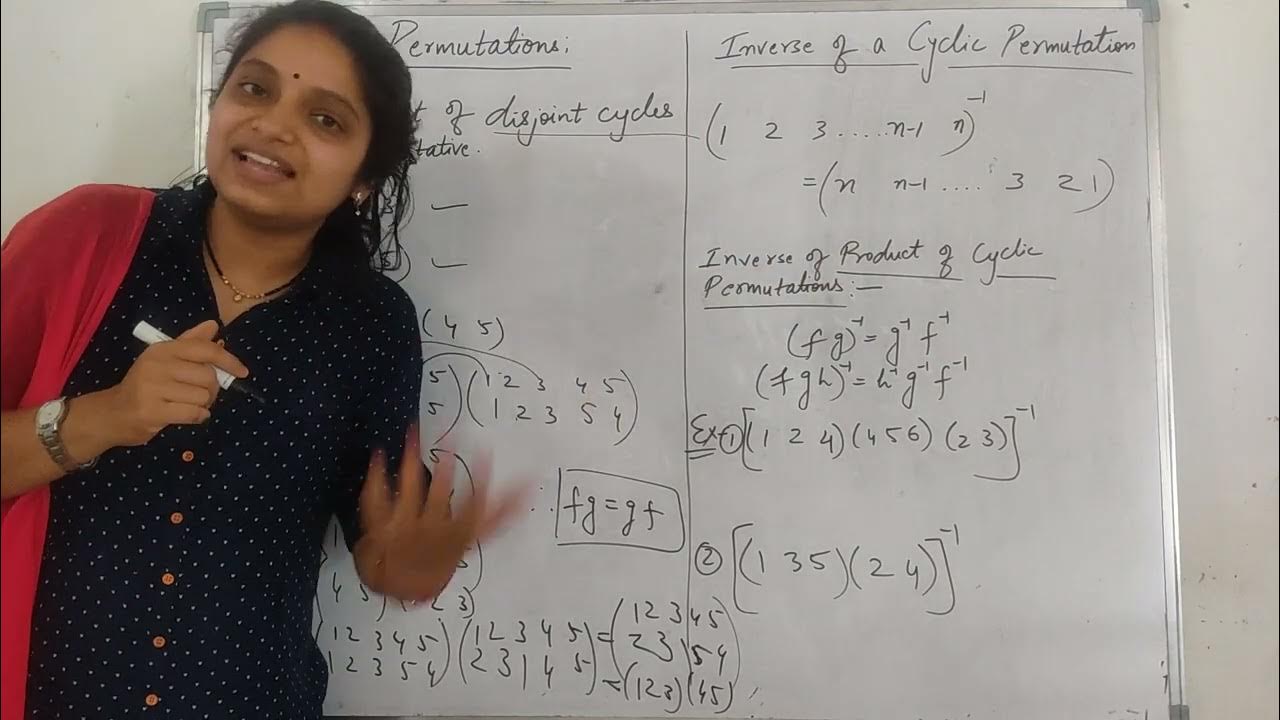 Permutations:
of disjoint cycles
(4 5)
5)(1 2 3 4 5
5)(1 2 3 5 4)
5
∴ fg = gf
4 5)( 2 3)
(1 2 3 4 5)(1 2 3 4 5)=(1 2 3 4 5
1 2 3 5 4)(2 3 1 4 5) 2 3 1 5 4)
=(1 2 3)(4 5)
Inverse of a Cyclic Permutation
(1 2 3 ..... n-1 n)⁻¹
=(n n-1 .... 3 2 1)
Inverse of Product of Cyclic
Permutations:-
(f g)⁻¹ = g⁻¹ f⁻¹
(f g h)⁻¹ = h⁻¹ g⁻¹ f⁻¹
Ex-① [(1 2 4)(4 5 6)(2 3)]⁻¹
② [(1 3 5)(2 4)]⁻¹